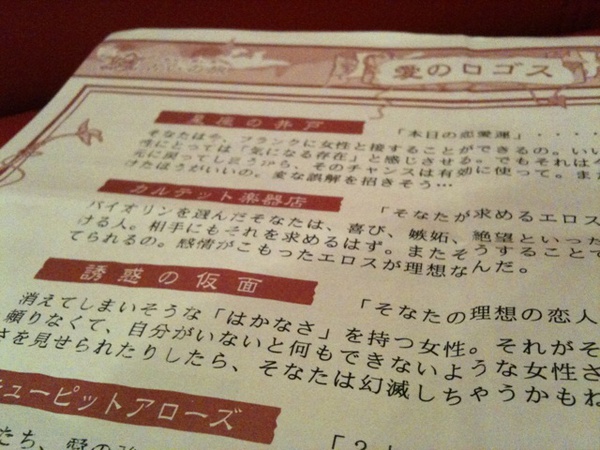 愛のロゴス
星座の井戸
「本日の恋愛運」・・・・
そなたは今、フランクに女性と接することができるの。いい
性にとっては「気になる存在」と感じさせる。でもそれは今
元に戻ってしまうから、そのチャンスは有効に使って。また
けたほうがいいの。変な誤解を招きそう…
カルテット楽器店
「そなたが求めるエロス
バイオリンを選んだそなたは、喜び、嫉妬、絶望といった
ける人。相手にもそれを求めるはず。またそうすることで
てられるの。感情がこもったエロスが理想なんだ。
誘惑の仮面
「そなたの理想の恋人
消えてしまいそうな「はかなさ」を持つ女性。それがそ
願りなくて、自分がいないと何もできないような女性さ
さを見せられたりしたら、そなたは幻滅しちゃうかもね
キューピットアローズ
「2」
たち、愛の